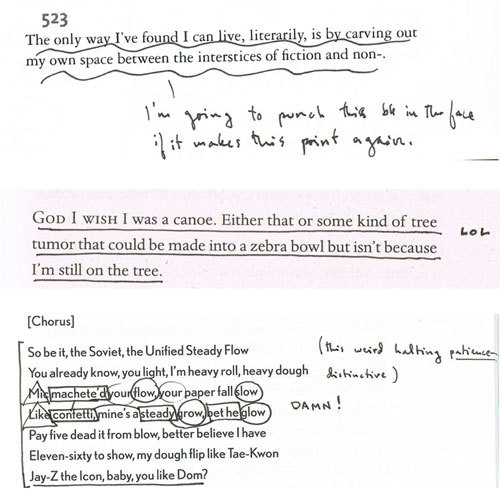 523
The only way I've found I can live, literarily, is by carving out
my own space between the interstices of fiction and non-.
I'm going to punch this bk in the face
if it makes this point again.
GOD I WISH I was a canoe. Either that or some kind of tree
tumor that could be made into a zebra bowl but isn't because
I'm still on the tree.
LOL
[Chorus]
So be it, the Soviet, the Unified Steady Flow
(this weird halting patience
You already know, you light, I'm heavy roll, heavy dough
distinctive)
Mic machete'd your flow, your paper fall slow
Like confetti, mine's a steady grow, bet he glow
DAMN!
Pay five dead it from blow, better believe I have
Eleven-sixty to show, my dough flip like Tae-Kwon
Jay-Z the Icon, baby, you like Dom?